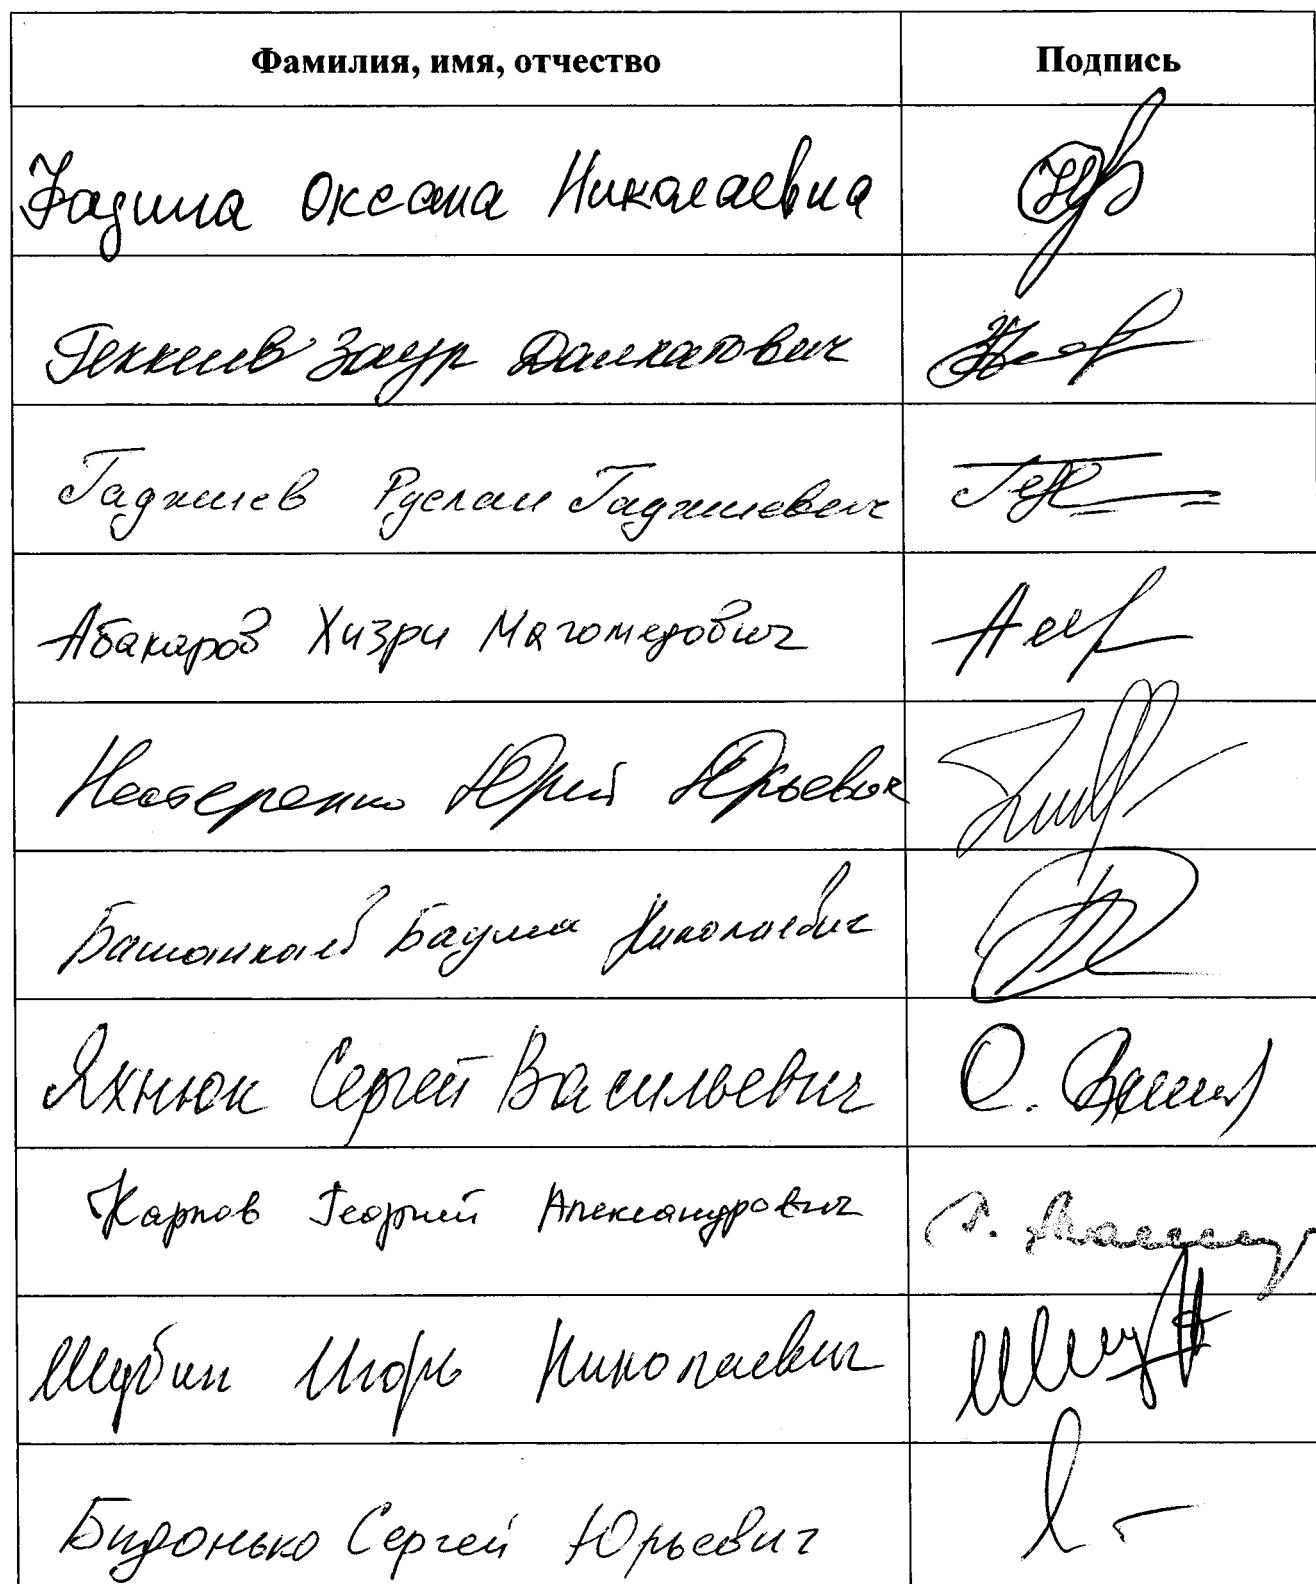 Фамилия, имя, отчество Подпись
Оксана Николаевна
Геккиев Заур Далхатович
Гаджиев Руслан Гаджиевич
Абакаров Хизри Магомедович
Нестеренко Юрий Юрьевич
Башанкаев Бадма Николаевич
Яхнюк Сергей Васильевич
Карпов Георгий Александрович
Шубин Игорь Николаевич
Бидонько Сергей Юрьевич